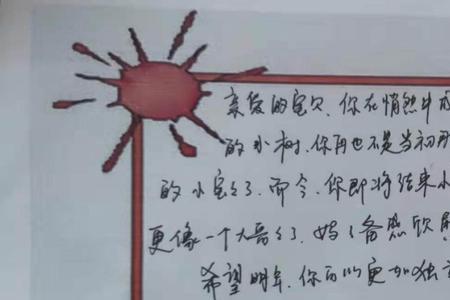 亲爱的宝贝、你在悄然中成
的小树.你再也不是当初那
的小宝宝了.而今.你即将结束小
更像一个大哥哥了.妈妈备感欣慰
希望明年.你可以更加独立